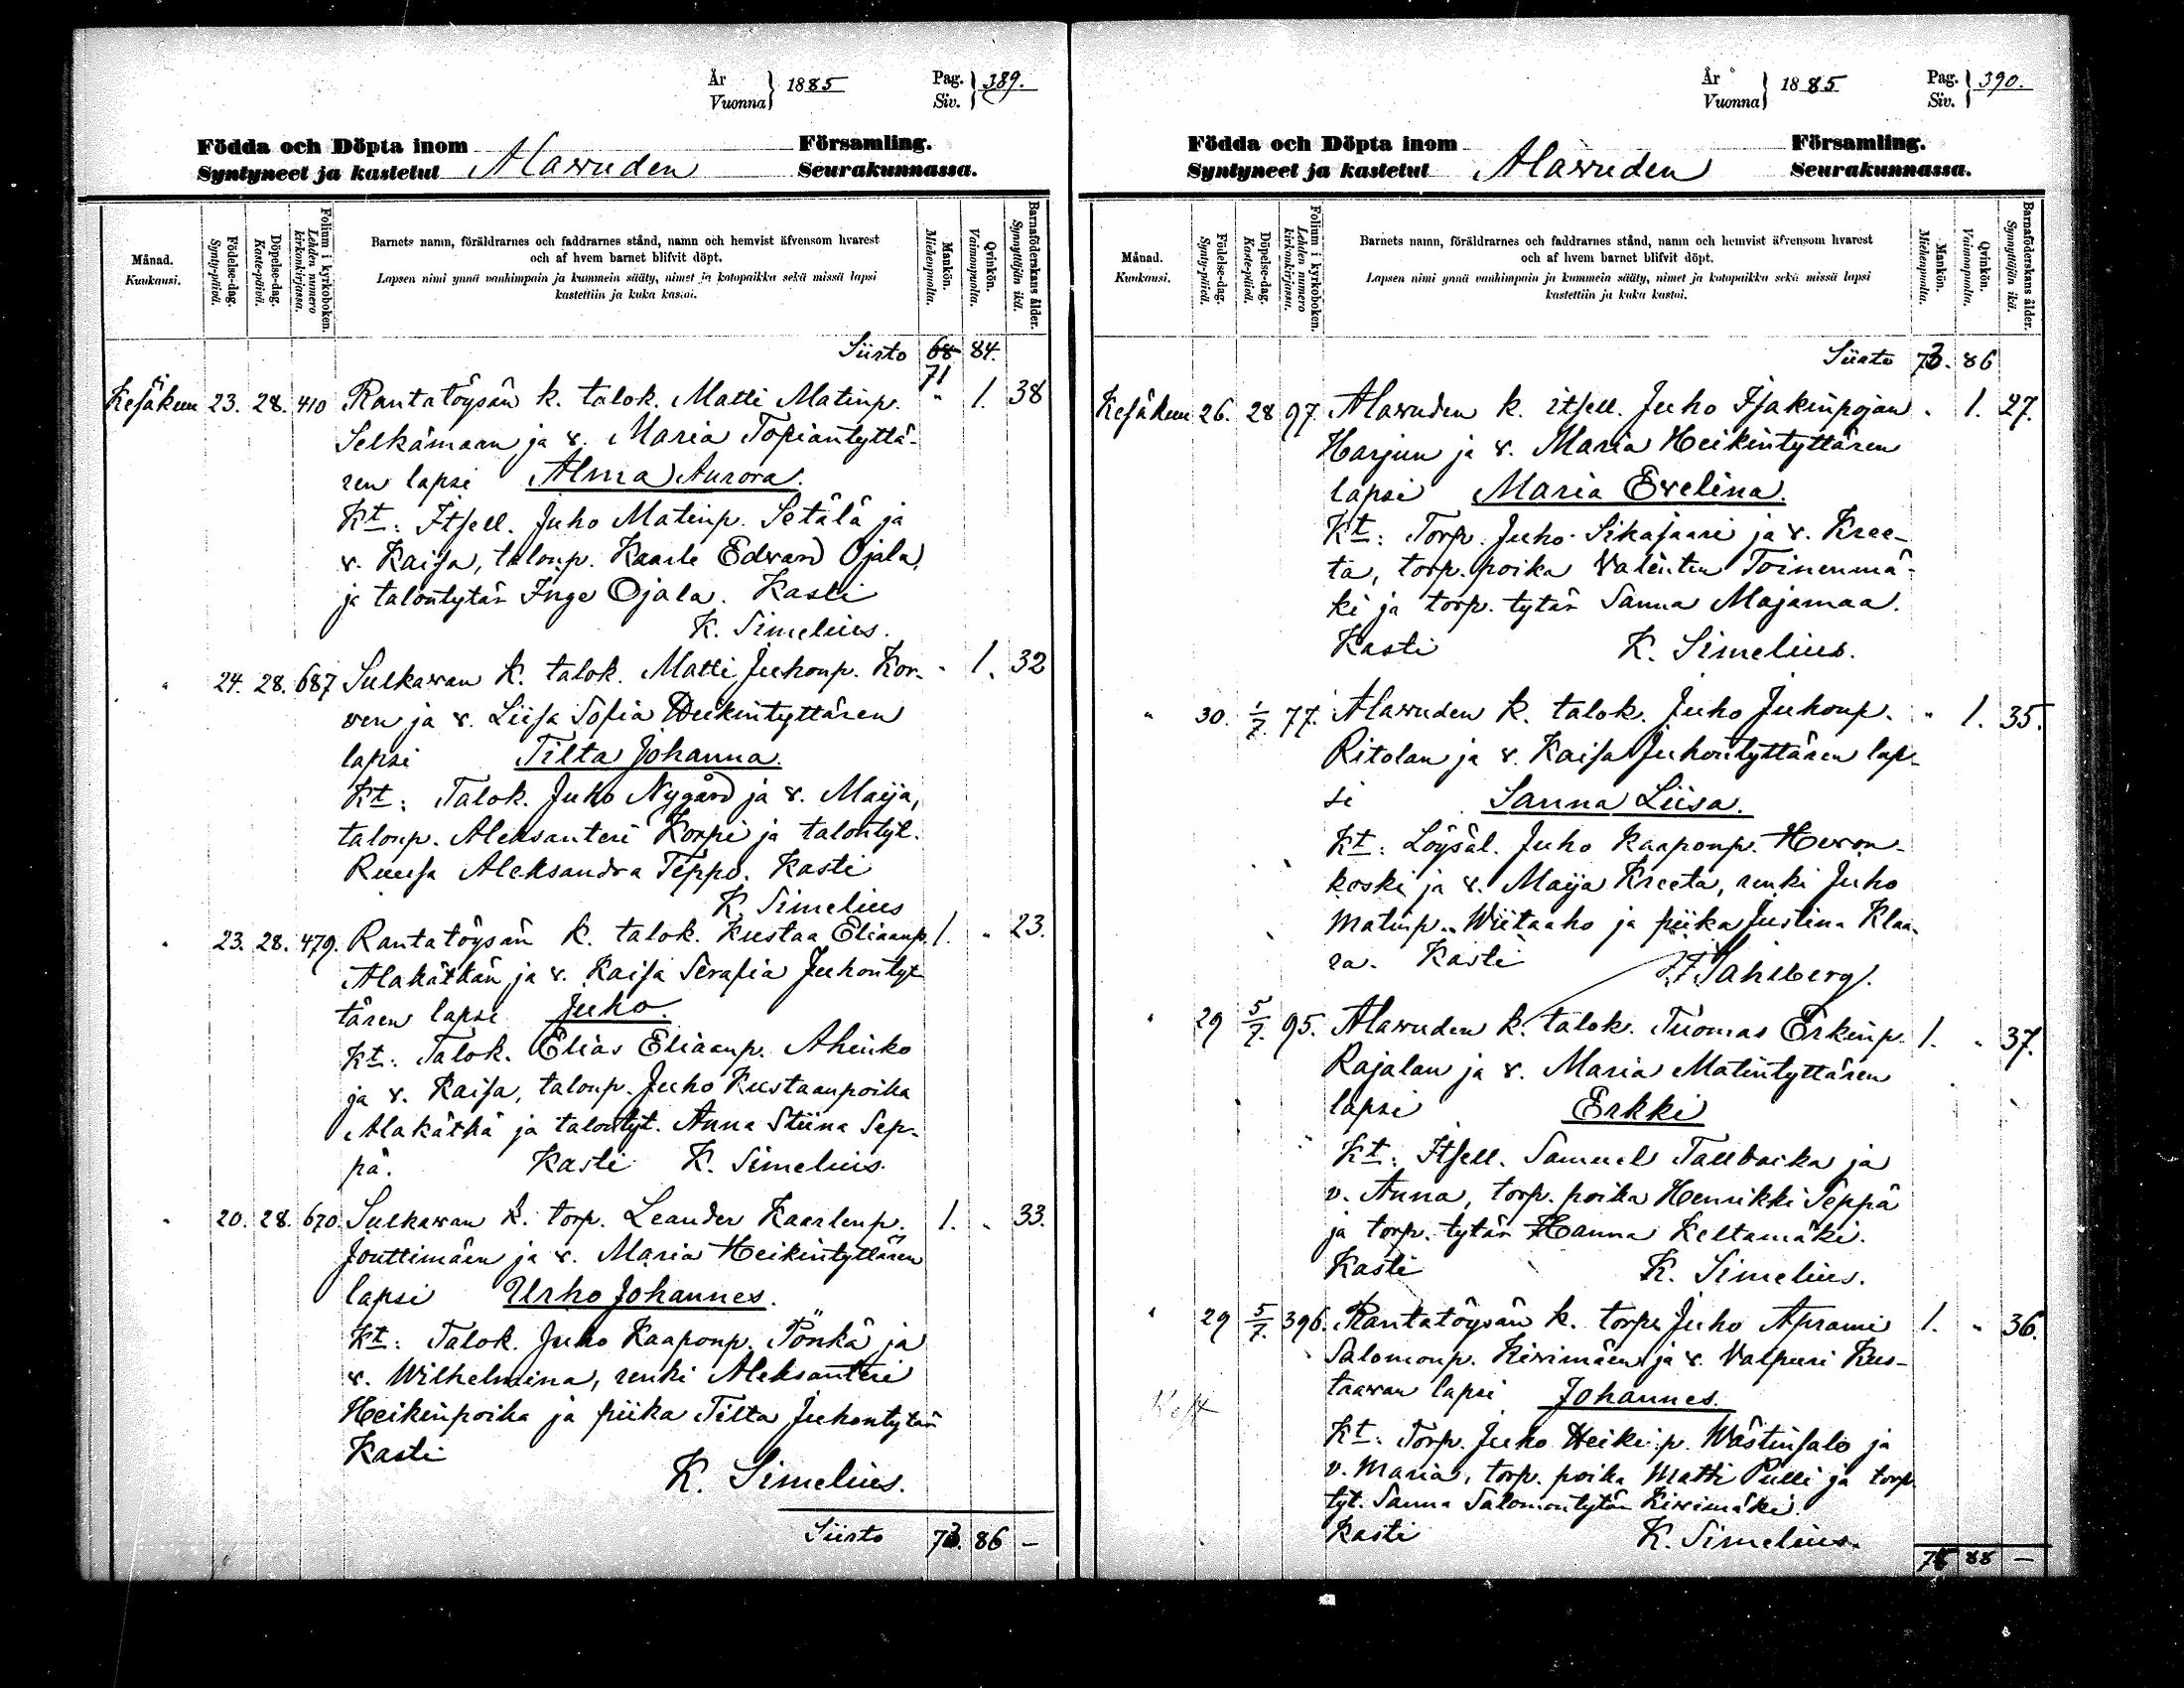 År
Vuonna } 1885 Pag.
Siv. } 389.
Födda och Döpta inom Församling.
Syntyneet ja kastetut Alavuden Seurakunnassa.
Månad.
Kuukausi.
Födelse-dag.
Synty-päivä.
Döpelse-dag.
Kaste-päivä.
Folium i kyrkoboken.
Lehden numero
kirkonkirjassa.
Barnets namn, föräldrarnes och faddrarnes stånd, namn och hemvist äfvensom hvarest
och af hvem barnet blifvit döpt.
Lapsen nimi ynnä vanhimpain ja kummein sääty, nimet ja kotopaikka sekä missä lapsi
kastettiin ja kuka kastoi.
Mankön.
Miehenpuolta.
Qvinkön.
Vaimonpuolta.
Barnaföderskans ålder.
Synnyttäjän ikä.
Siirto 68 84.
71
Kesäkuu 23. 28. 410 Rantatöysän k. talok. Matti Matinp. " 1. 38
Selkämaan ja v. Maria Topiantyttä-
ren lapsi Alma Aurora.
Kt: Itsell. Juho Matinp. Setälä ja
v. Kaisa, talonp. Kaarle Edvard Ojala,
ja talontytär Inge Ojala. Kasti
K. Simelius.
" 24. 28. 687 Sulkavan k. talok. Matti Juhonp. Kor- " 1. 32
ven ja v. Liisa Sofia Heikintyttären
lapsi Tilta Johanna.
Kt: Talok. Juho Nygård ja v. Maija,
talonp. Aleksanteri Korpi ja talontyt.
Ruusa Aleksandra Teppo. Kasti
K. Simelius
" 23. 28. 479. Rantatöysän k. talok. Kustaa Eliaanp. 1. " 23.
Alakätkän ja v. Kaisa Serafia Juhontyt-
tären lapsi Juho.
Kt: Talok. Elias Eliaanp. Ahinko
ja v. Kaisa, talonp. Juho Kustaanpoika
Alakätkä ja talontyt. Anna Stiina Sep-
pä. Kasti K. Simelius.
" 20. 28. 670. Sulkavan k. torp. Leander Kaarlenp. 1. " 33.
Jouttimäen ja v. Maria Heikintyttären
lapsi Urho Johannes.
Kt: Talok. Juho Kaaponp. Pönkä ja
v. Wilhelmina, renki Aleksanteri
Heikinpoika ja piika Tilta Juhontytär
Kasti
K. Simelius.
Siirto 73. 86 —
År
Vuonna } 1885 Pag.
Siv. } 390.
Födda och Döpta inom Församling.
Syntyneet ja kastetut Alavuden Seurakunnassa.
Månad.
Kuukausi.
Födelse-dag.
Synty-päivä.
Döpelse-dag.
Kaste-päivä.
Folium i kyrkoboken.
Lehden numero
kirkonkirjassa.
Barnets namn, föräldrarnes och faddrarnes stånd, namn och hemvist äfvensom hvarest
och af hvem barnet blifvit döpt.
Lapsen nimi ynnä vanhimpain ja kummein sääty, nimet ja kotopaikka sekä missä lapsi
kastettiin ja kuka kastoi.
Mankön.
Miehenpuolta.
Qvinkön.
Vaimonpuolta.
Barnaföderskans ålder.
Synnyttäjän ikä.
Siirto 73. 86
Kesäkuu 26. 28 97. Alavuden k. itsell. Juho Isakinpojan " 1. 27.
Harjun ja v. Maria Heikintyttären
lapsi Maria Evelina.
Kt: Torp. Juho Sikasaari ja v. Kree-
ta, torp. poika Valentin Toinenmä-
ki ja torp. tytär Sanna Majamaa.
Kasti K. Simelius.
" 30. 1/7. 77. Alavuden k. talok. Juho Juhonp. " 1. 35.
Ritolan ja v. Kaisa Juhontyttären lap-
si Sanna Liisa.
Kt: Löysäl. Juho Kaaponp. Hevon-
koski ja v. Maija Kreeta, renki Juho
Matinp. Wiitaaho ja piika Justina Klaa-
ra. Kasti Sahlberg.
" 29 5/7. 95. Alavuden k. talok. Tuomas Erkinp. 1. " 37.
Rajalan ja v. Maria Matintyttären
lapsi Erkki
Kt: Itsell. Samuel Tallbacka ja
v. Anna, torp. poika Henrikki Seppä
ja torp. tytär Hanna Keltamäki.
Kasti K. Simelius.
" 29 5/7. 396. Rantatöysän k. torp. Juho Aprami 1. " 36.
Salomonp. Kivimäen ja v. Valpuri Kus-
taavan lapsi Johannes.
Kt: Torp. Juho Heikinp. Wästinsalo ja
v. Maria, torp. poika Matti Pulli ja torp.
tyt. Sanna Salomontytär Kivimäki.
Kasti K. Simelius.
75 88 —